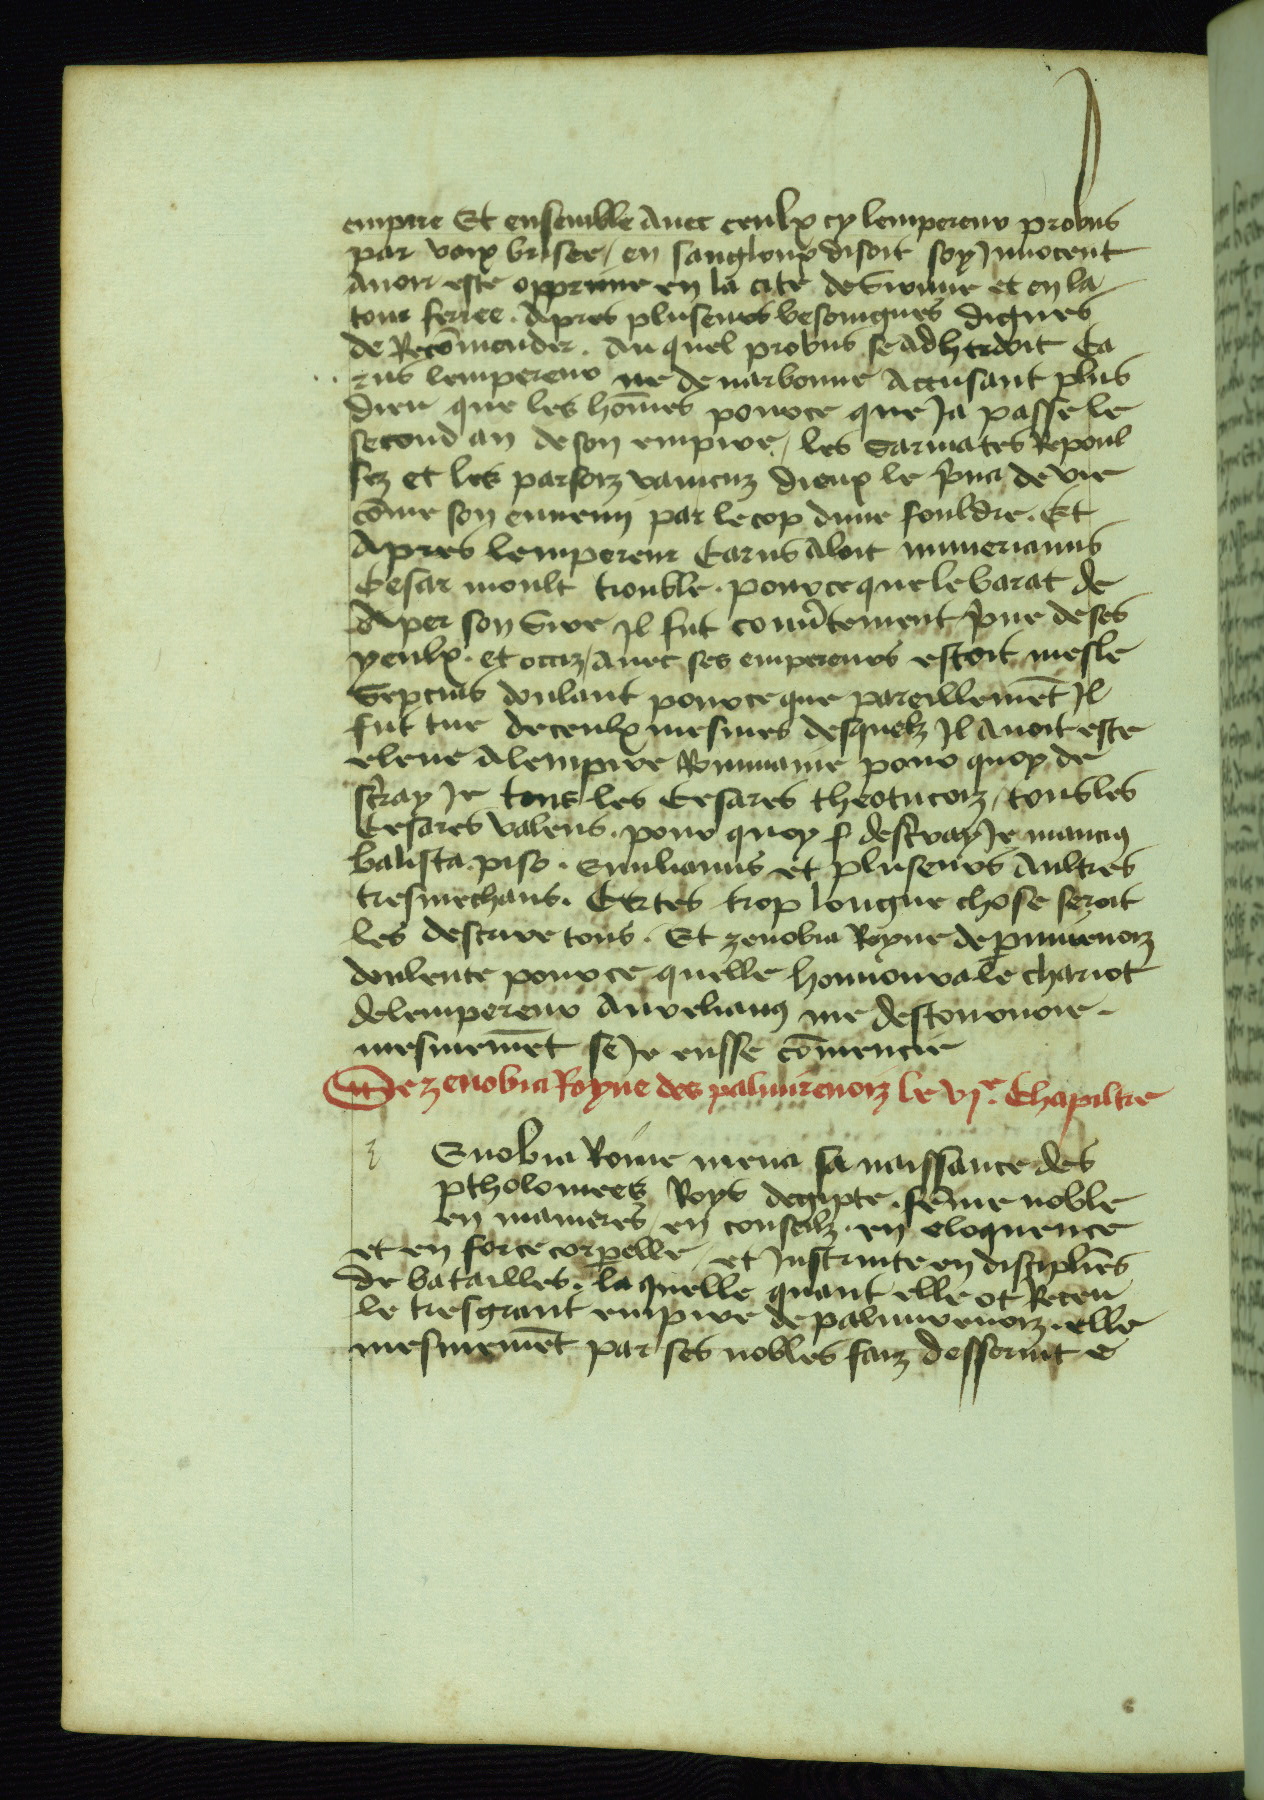 empire Et ensemble Auec ceulx cy lempereur probus
par voix brisee / en sangloux disoit soy Innocent
Auoir este opprime en la cite de Sirmie et en la
tour ferree . Apres pluseurs besoingnes dignes
de Recōmender . Au quel probus se Adherdoit Ca
rus lempereur ne de narbonne Accusant plus
dieu que les hōmes pource que Ja passe le
second an de son empire / les Sarmates Repoul
sez et les parsoiz vaincuz dieux le p̄ua de vie
cōme son ennemi par le cop dune fouldre . Et
Apres lempereur Carus Aloit numerianus
Cesar moult trouble . pource que le barat de
Aper son Sire Il fut couu̓tement p̄ue de ses
yeulx . et occiz / Auec ses empereurs estoit mesle
doulant pource que pareillemēt Il
fut tue de ceulx mesmes desquelz Il Auoit este
esleue A lempire Rommaine pour quoy de
sc̓ray Je tous les Cesares theotucoiz / tous les
Cesares valens . pour quoy descray Je
balista . piso . Emilianus et pluseurs Aultres
tresmechans . Certes trop longue chose seroit
les descrire tous . Et zenobia Royne de
doulente pource quelle honnoura le chariot
de lempereur Aurelianus me destournoie
mesmemēt se Je eusse cōmencie
De zenobia Royne des palmirenoiz le vjᵉ . Chapiltre
z Enobia Roine mena sa naissance des
ptholomees Roys degipte . fēme noble
en manieres / en conseilz . en eloquence
et en force corpelle / et Instruite en disciplīes
de batailles . la quelle quant elle ot Receu
le tresgrant empire de palmurenoiz . elle
mesmemēt par ses nobles faiz desseruit e